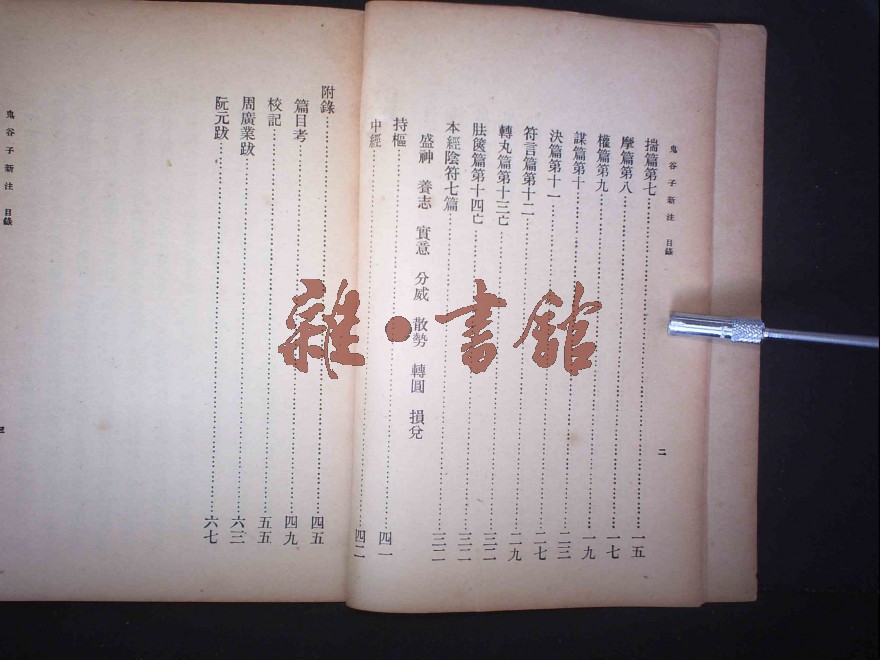 鬼谷子新注 目錄
二
揣篇第七 一五
摩篇第八 一七
權篇第九 一九
謀篇第十 二三
決篇第十一 二七
符言篇第十二 二九
轉丸篇第十三亡 三二
胠篋篇第十四亡 三二
本經陰符七篇 三二
盛神 養志 實意 分威 散勢 轉圓 損兌
持樞 四一
中經 四二
附錄 四五
篇目考 四九
校記 五五
周廣業跋 六三
阮元跋 六七
鬼谷子新注 目錄
三
雜·書館